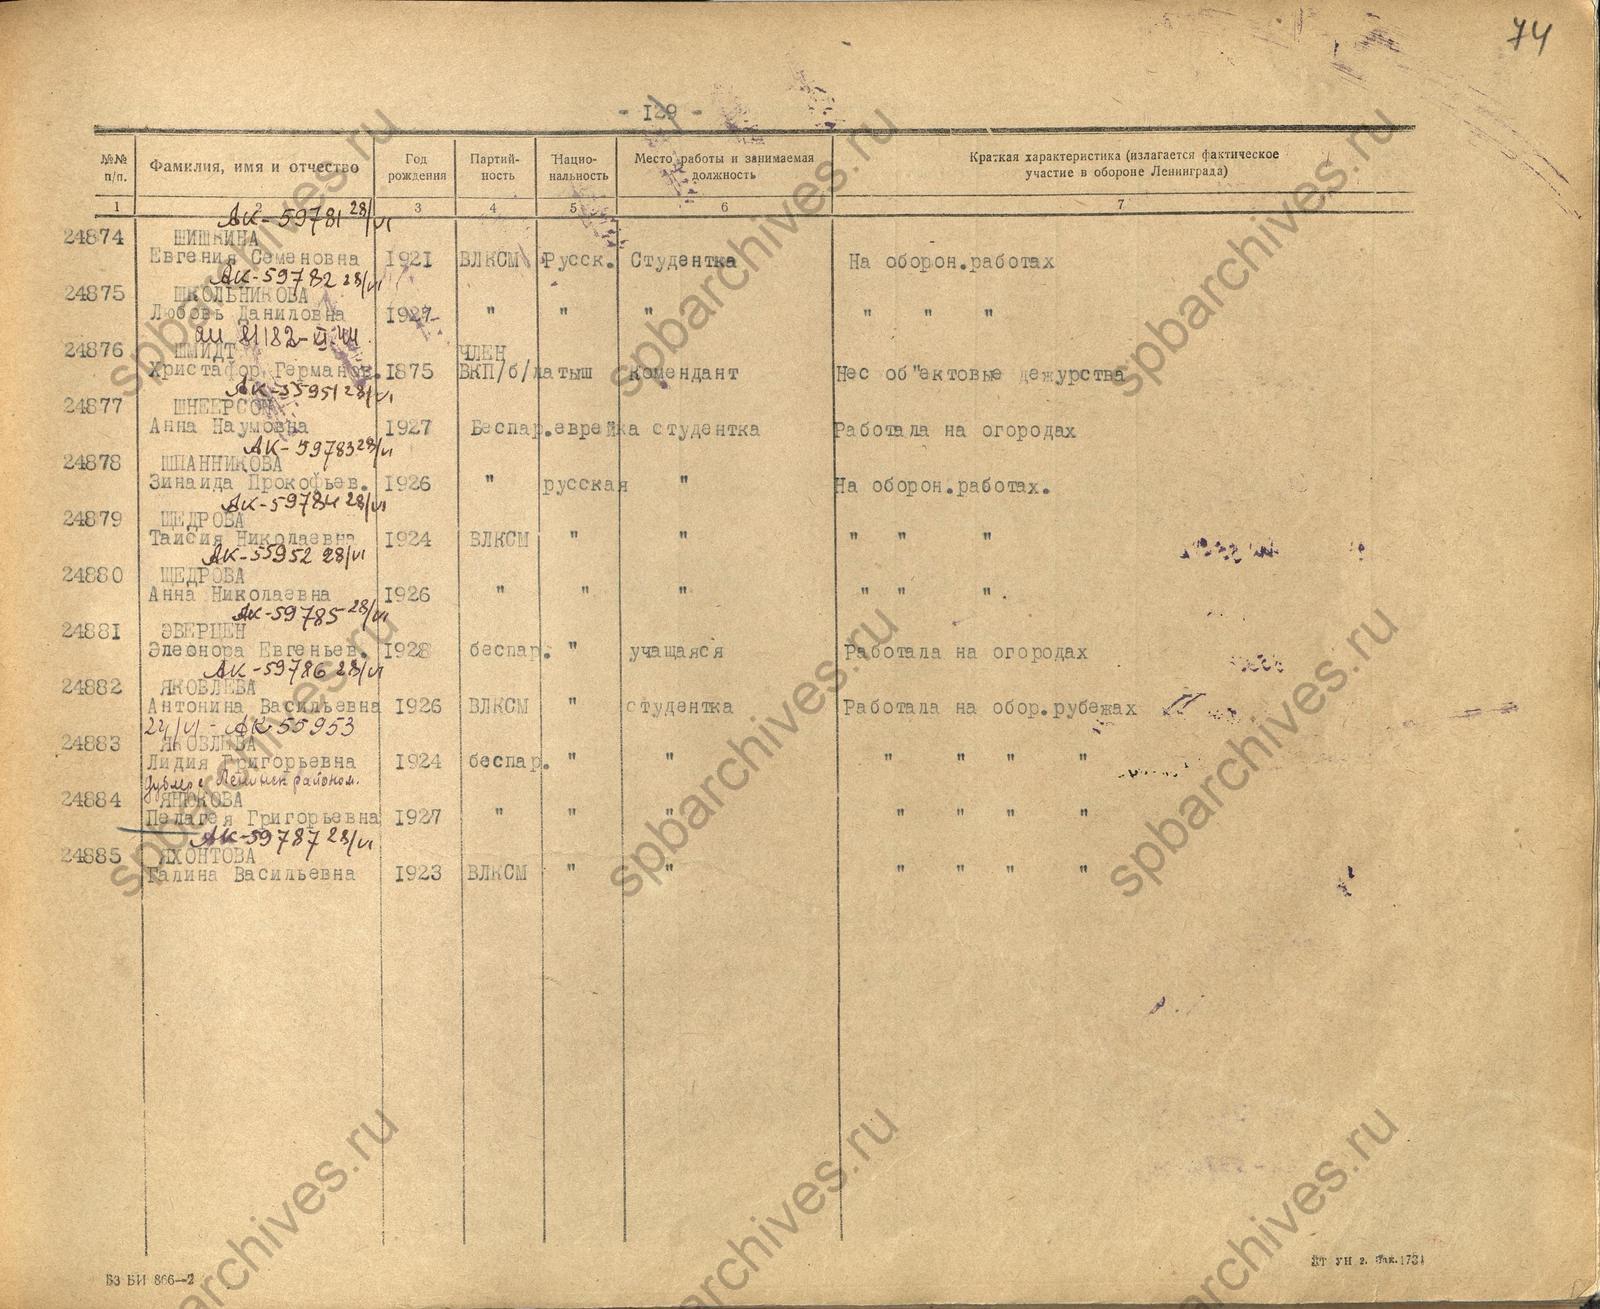 74
- 129 -
№№ п/п. Фамилия, имя и отчество Год рождения Партий-ность Нацио-нальность Место работы и занимаемая должность Краткая характеристика (излагается фактическое участие в обороне Ленинграда)
1 2 3 4 5 6 7
АК-59781 28/VI
24874 ШИШКИНА
Евгения Семеновна 1921 ВЛКСМ Русск. Студентка На оборон.работах
АК-59782 28/VI
24875 ШКОЛЬНИКОВА
Любовь Даниловна 1927 " " " " " "
24876 ШМИДТ ЧЛЕН
Христафор Герман 1875 ВКП/б/латыш комендант Нес об"ектовые дежурства
АК-55951 28/VI
24877 ШНЕЕРСОН
Анна Наумовна 1927 Беспар.еврейка студентка Работала на огородах
АК-59783 28/VI
24878 ШПАННИКОВА
Зинаида Прокофьев. 1926 " русская " На оборон.работах.
АК-59784 28/VI
24879 ЩЕДРОВА
Таисия Николаевна 1924 ВЛКСМ " " " " "
АК-55952 28/VI
24880 ЩЕДРОВА
Анна Николаевна 1926 " " " " " "
АК-59785 28/VI
24881 ЭВЕРЦЕН
Элеонора Евгеньев. 1928 беспар. " учащаяся Работала на огородах
АК-59786 28/VI
24882 ЯКОВЛЕВА
Антонина Васильевна 1926 ВЛКСМ " студентка Работала на обор.рубежах
АК-55953
24883 ЯКОВЛЕВА
Лидия Григорьевна 1924 беспар. " " " " " "
районом.
24884 ЯНЮКОВА
Пелагея Григорьевна 1927 " " " " " " "
АК-59787 28/VI
24885 ЯХОНТОВА
Галина Васильевна 1923 ВЛКСМ " " " " " "
БЗ БИ 866—2
spbarchives.ru
spbarchives.ru
spbarchives.ru
spbarchives.ru
spbarchives.ru
spbarchives.ru
spbarchives.ru
spbarchives.ru
spbarchives.ru